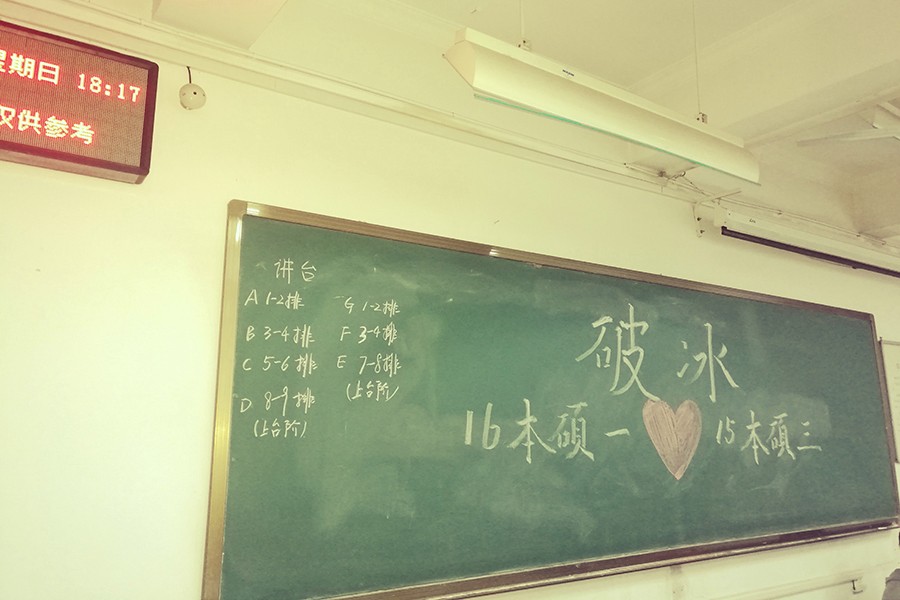 星期日 18:17
仅供参考
讲台
A 1-2排
B 3-4排
C 5-6排
D 8-9排
(上台阶)
G 1-2排
F 3-4排
E 7-8排
(上台阶)
破冰
16本硕一 15本硕三